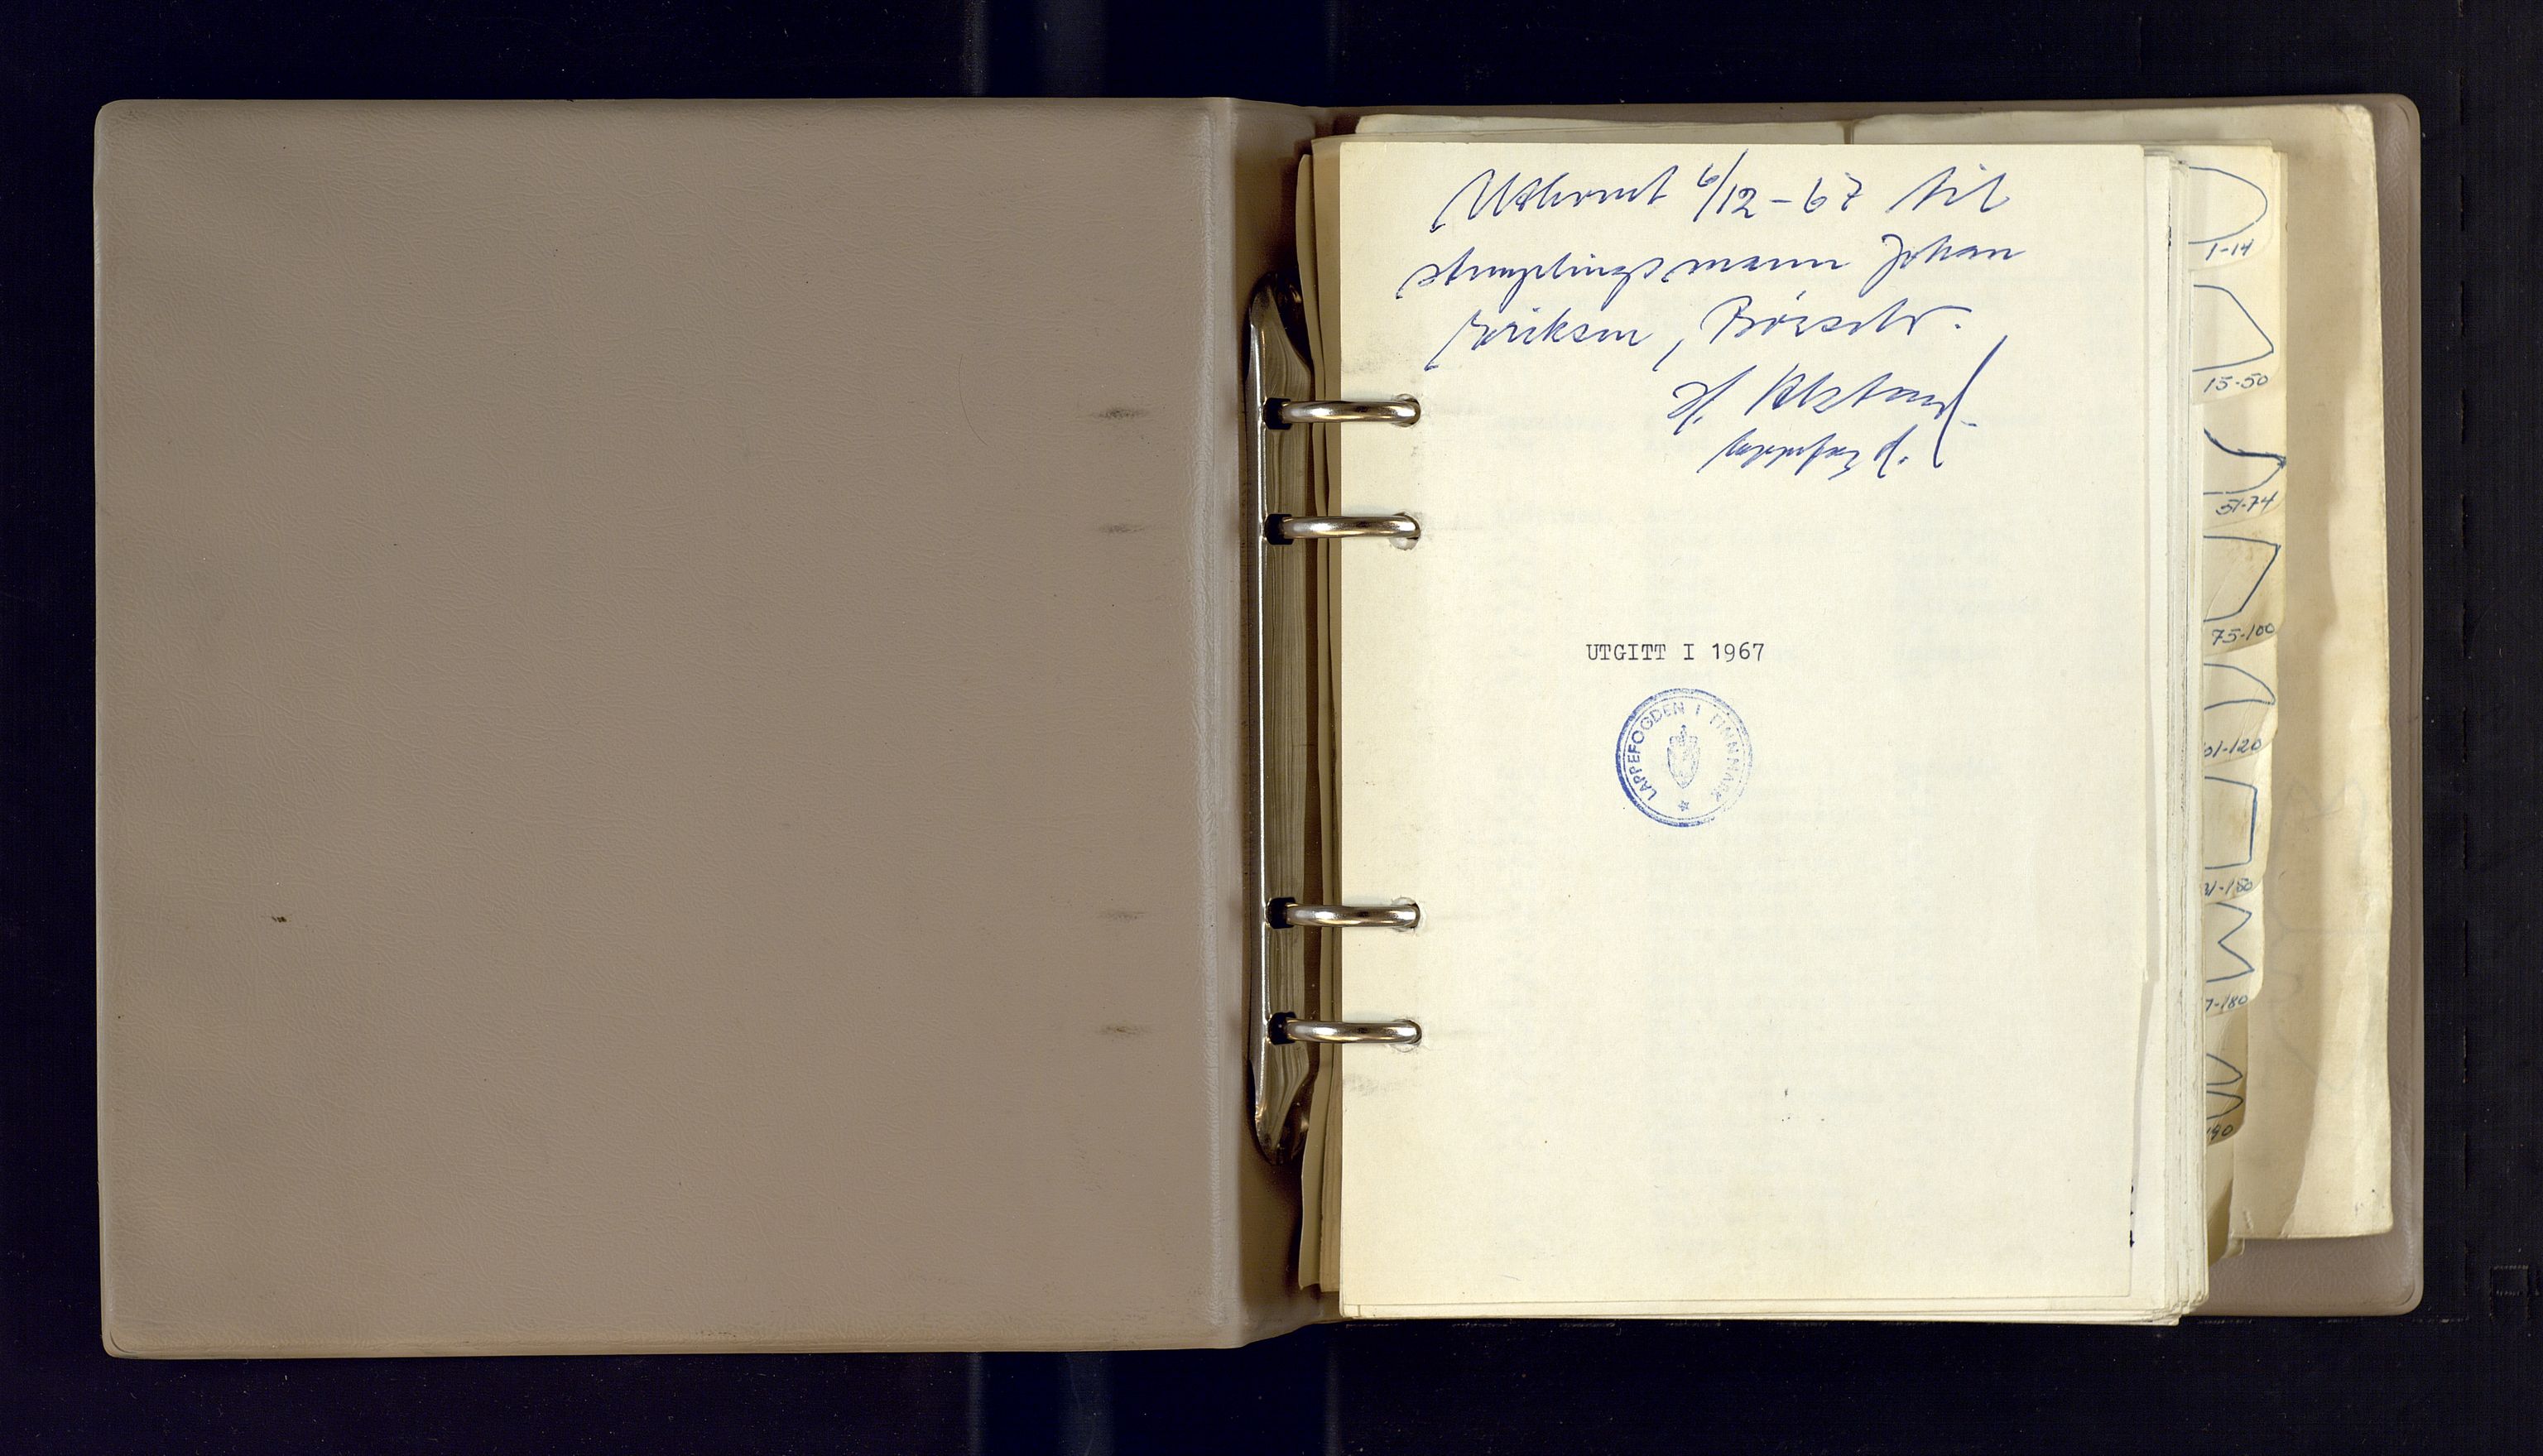 Utlevert 6/12-67 til
stemplingsmann Johan
Eriksen, Børselv.
lappefogd.
UTGITT I 1967
LAPPEFOGDEN I FINNMARK
1-14
15-50
51-74
75-100
01-120
-180
7-180
190